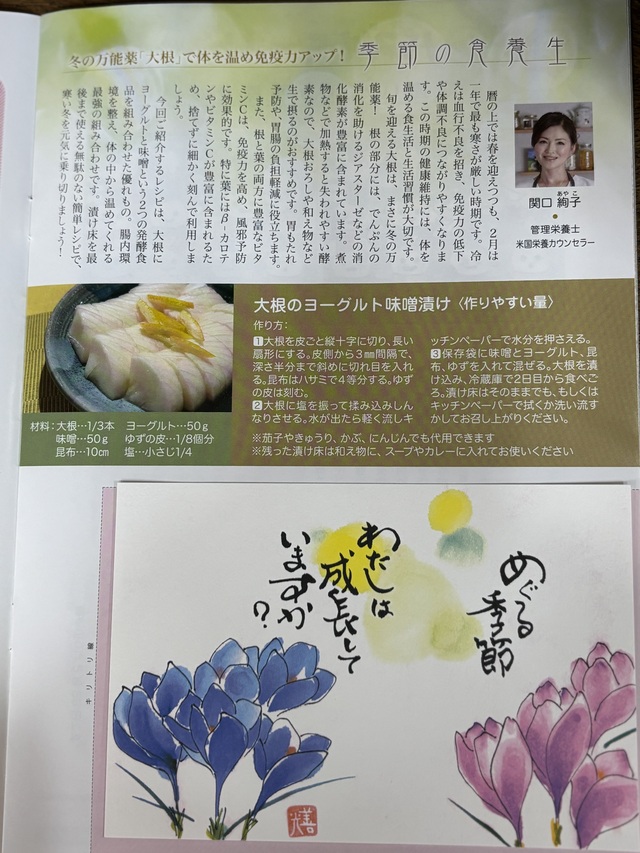 冬の万能薬「大根」で体を温め免疫力アップ！
季節の食養生
暦の上では春を迎えつつも、2月は
一年で最も寒さが厳しい時期です。冷
えは血行不良を招き、免疫力の低下
や体調不良につながりやすくなりま
す。この時期の健康維持には、体を
温める食生活と生活習慣が大切です。
旬を迎える大根は、まさに冬の万
能薬！根の部分には、でんぷんの
消化を助けるジアスターゼなどの消
化酵素が豊富に含まれています。煮
物などで加熱すると失われやすい酵
素なので、大根おろしや和え物など
生で摂るのがおすすめです。胃もたれ
予防や、胃腸の負担軽減に役立ちます。
また、根と葉の両方に豊富なビタ
ミンCは、免疫力を高め、風邪予防
に効果的です。特に葉にはβ-カロテ
ンやビタミンCが豊富に含まれるた
め、捨てずに細かく刻んで利用しま
しょう。
今回ご紹介するレシピは、大根に
ヨーグルトと味噌という2つの発酵食
品を組み合わせた優れもの。腸内環
境を整え、体の中から温めてくれる
最強の組み合わせです。漬け床を最
後まで使える無駄のない簡単レシピで、
寒い冬を元気に乗り切りましょう！
あやこ
関口 絢子
管理栄養士
米国栄養カウンセラー
大根のヨーグルト味噌漬け〈作りやすい量〉
作り方：
1大根を皮ごと縦十字に切り、長い
扇形にする。皮側から3㎜間隔で、
深さ半分まで斜めに切れ目を入れ
る。昆布はハサミで4等分する。ゆず
の皮は刻む。
2大根に塩を振って揉み込みしん
なりさせる。水が出たら軽く流しキ
ッチンペーパーで水分を押さえる。
3保存袋に味噌とヨーグルト、昆
布、ゆずを入れて混ぜる。大根を漬
け込み、冷蔵庫で2日目から食べご
ろ。漬け床はそのままでも、もしくは
キッチンペーパーで拭くか洗い流す
かしてお召し上がりください。
※茄子やきゅうり、かぶ、にんじんでも代用できます
※残った漬け床は和え物に、スープやカレーに入れてお使いください
材料：大根…1/3本 ヨーグルト…50g
味噌…50g ゆずの皮…1/8個分
昆布…10㎝ 塩…小さじ1/4
めぐる
季節
わたしは
成長して
いますか？
キリトリ線